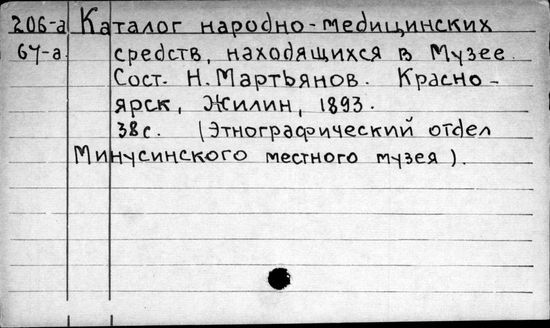 206-а Каталог народно-медицинских
64-а средств, находящихся в Музее.
Сост. Н. Мартьянов. Красно-
ярск, Жилин, 1893.
38 с. (Этнографический отдел
Минусинского местного музея).